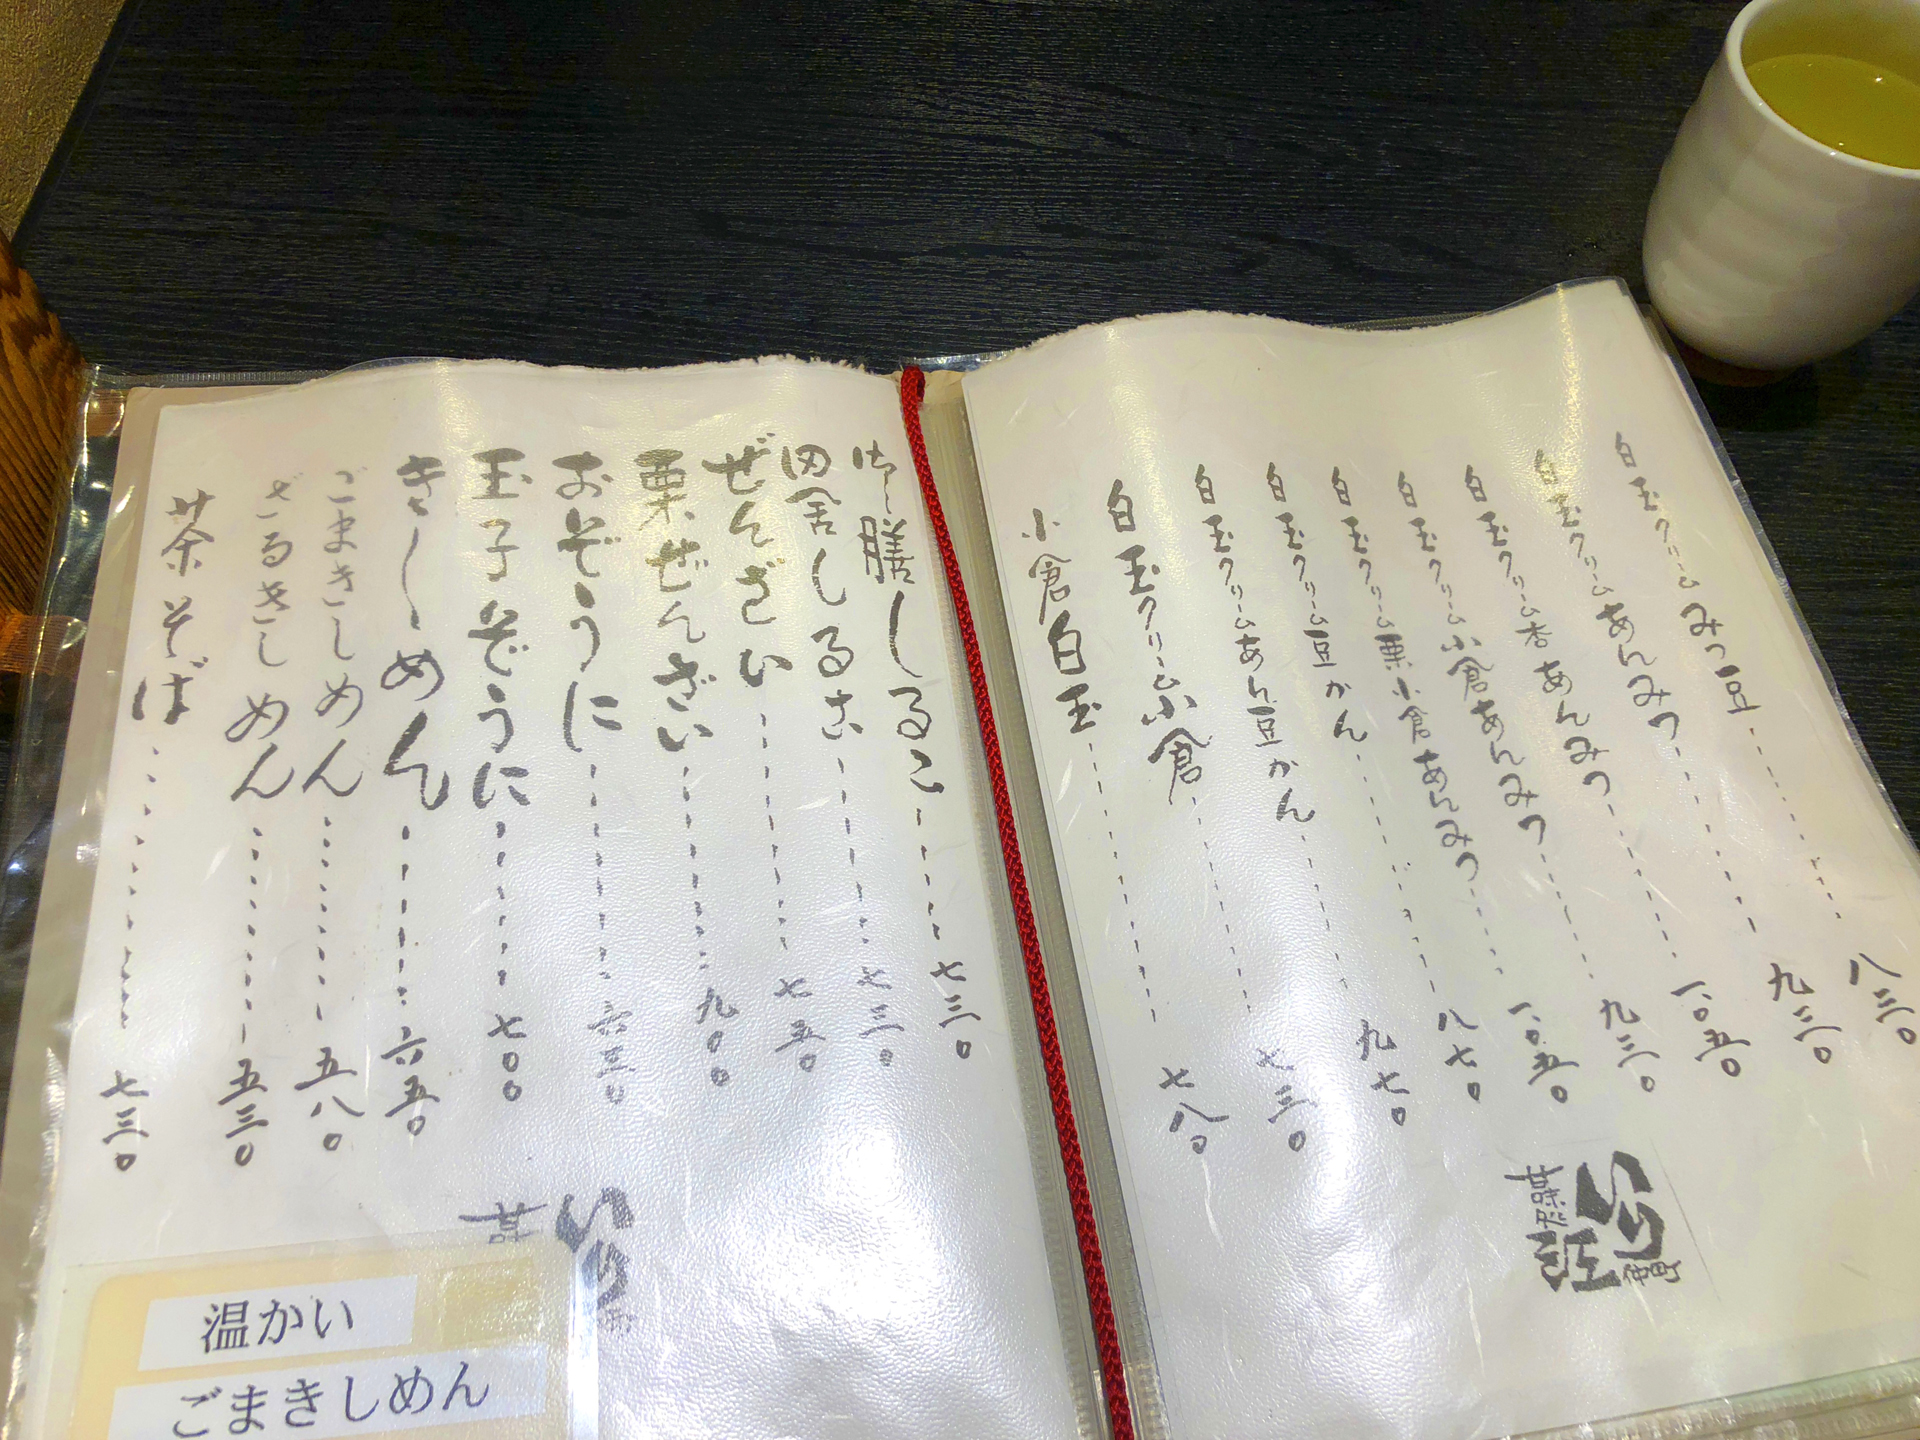 白玉クリームみつ豆………八三〇
白玉クリームあんみつ………九三〇
白玉クリーム杏あんみつ………一、〇五〇
白玉クリーム小倉あんみつ………九三〇
白玉クリーム栗小倉あんみつ………一、〇五〇
白玉クリーム豆かん………八七〇
白玉クリームあん豆かん………九七〇
白玉クリーム小倉………七三〇
小倉白玉………七八〇
仲町
いり江
甘味処
御膳しるこ………七三〇
田舎しるこ………七三〇
ぜんざい………七五〇
栗ぜんざい………九〇〇
おぞうに………六三〇
玉子ぞうに………七〇〇
きしめん………六五〇
ごまきしめん………五八〇
ざるきしめん………五三〇
茶そば………七三〇
いり
甘
温かい
ごまきしめん